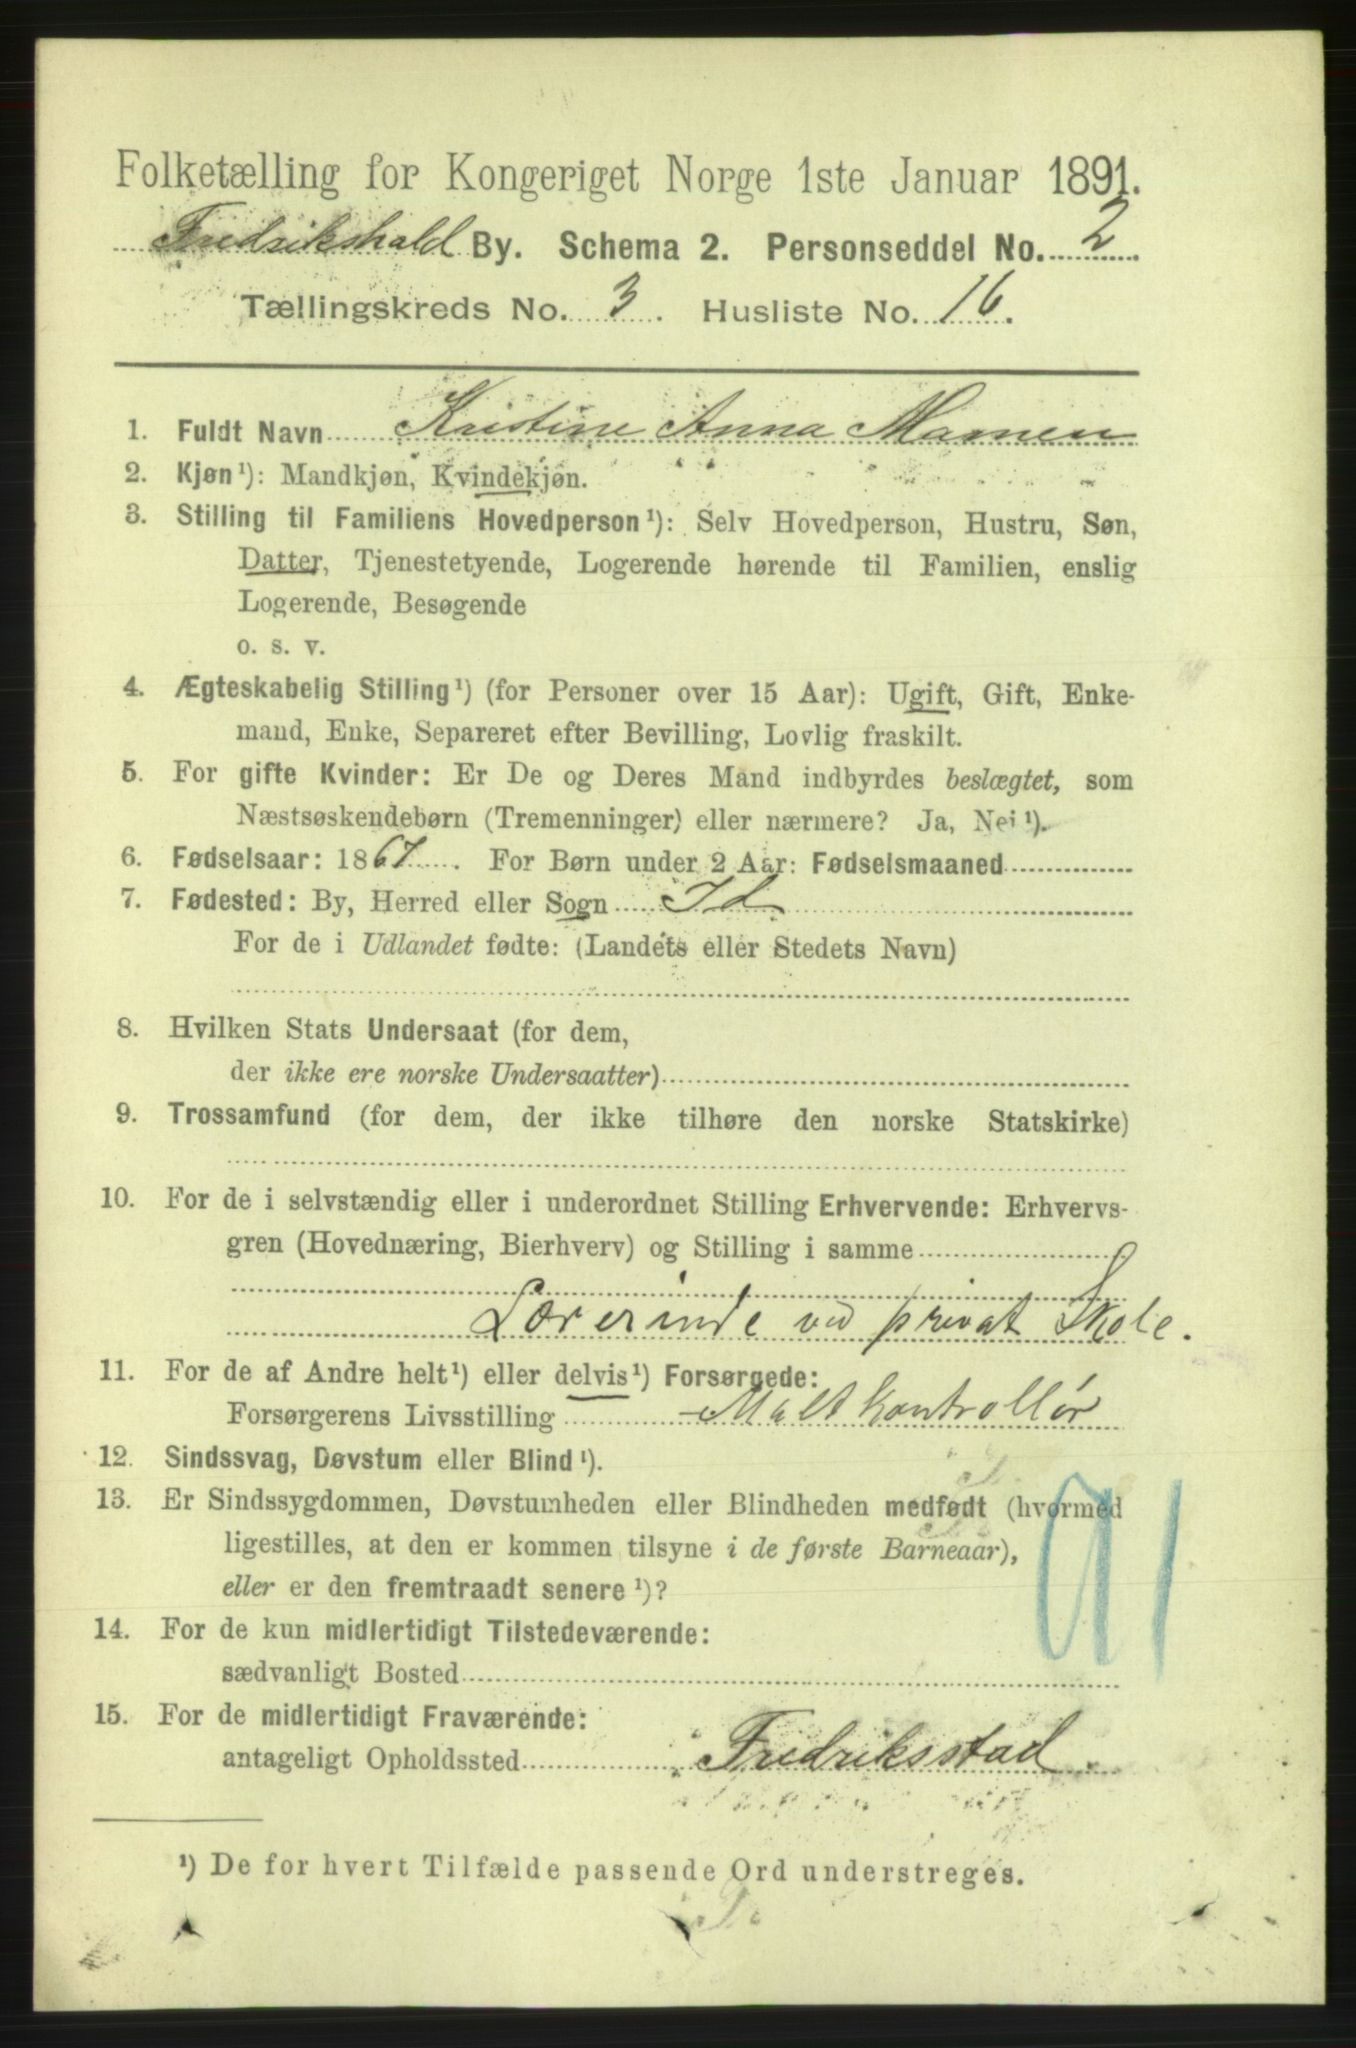 Folketælling for Kongeriget Norge 1ste Januar 1891.
Fredrikshald By. Schema 2. Personseddel No. 2
Tællingskreds No. 3. Husliste No. 16.
1. Fuldt Navn Kristine Anna Mamen
2. Kjøn¹): Mandkjøn, Kvindekjøn.
3. Stilling til Familiens Hovedperson¹): Selv Hovedperson, Hustru, Søn,
Datter, Tjenestetyende, Logerende hørende til Familien, enslig
Logerende, Besøgende
o. s. v.
4. Ægteskabelig Stilling¹) (for Personer over 15 Aar): Ugift, Gift, Enke-
mand, Enke, Separeret efter Bevilling, Lovlig fraskilt.
5. For gifte Kvinder: Er De og Deres Mand indbyrdes beslægtet, som
Næstsøskendebørn (Tremenninger) eller nærmere? Ja, Nei¹).
6. Fødselsaar: 1867. For Børn under 2 Aar: Fødselsmaaned
7. Fødested: By, Herred eller Sogn Id
For de i Udlandet fødte: (Landets eller Stedets Navn)
8. Hvilken Stats Undersaat (for dem,
der ikke ere norske Undersaatter)
9. Trossamfund (for dem, der ikke tilhøre den norske Statskirke)
10. For de i selvstændig eller i underordnet Stilling Erhvervende: Erhvervs-
gren (Hovednæring, Bierhverv) og Stilling i samme
Lærerinde ved privat Skole.
11. For de af Andre helt¹) eller delvis¹) Forsørgede:
Forsørgerens Livsstilling Maltkontrollør
12. Sindssvag, Døvstum eller Blind¹).
13. Er Sindssygdommen, Døvstumheden eller Blindheden medfødt (hvormed
ligestilles, at den er kommen tilsyne i de første Barneaar),
eller er den fremtraadt senere¹)?
91
14. For de kun midlertidigt Tilstedeværende:
sædvanligt Bosted
15. For de midlertidigt Fraværende:
antageligt Opholdssted Fredriksstad.
¹) De for hvert Tilfælde passende Ord understreges.